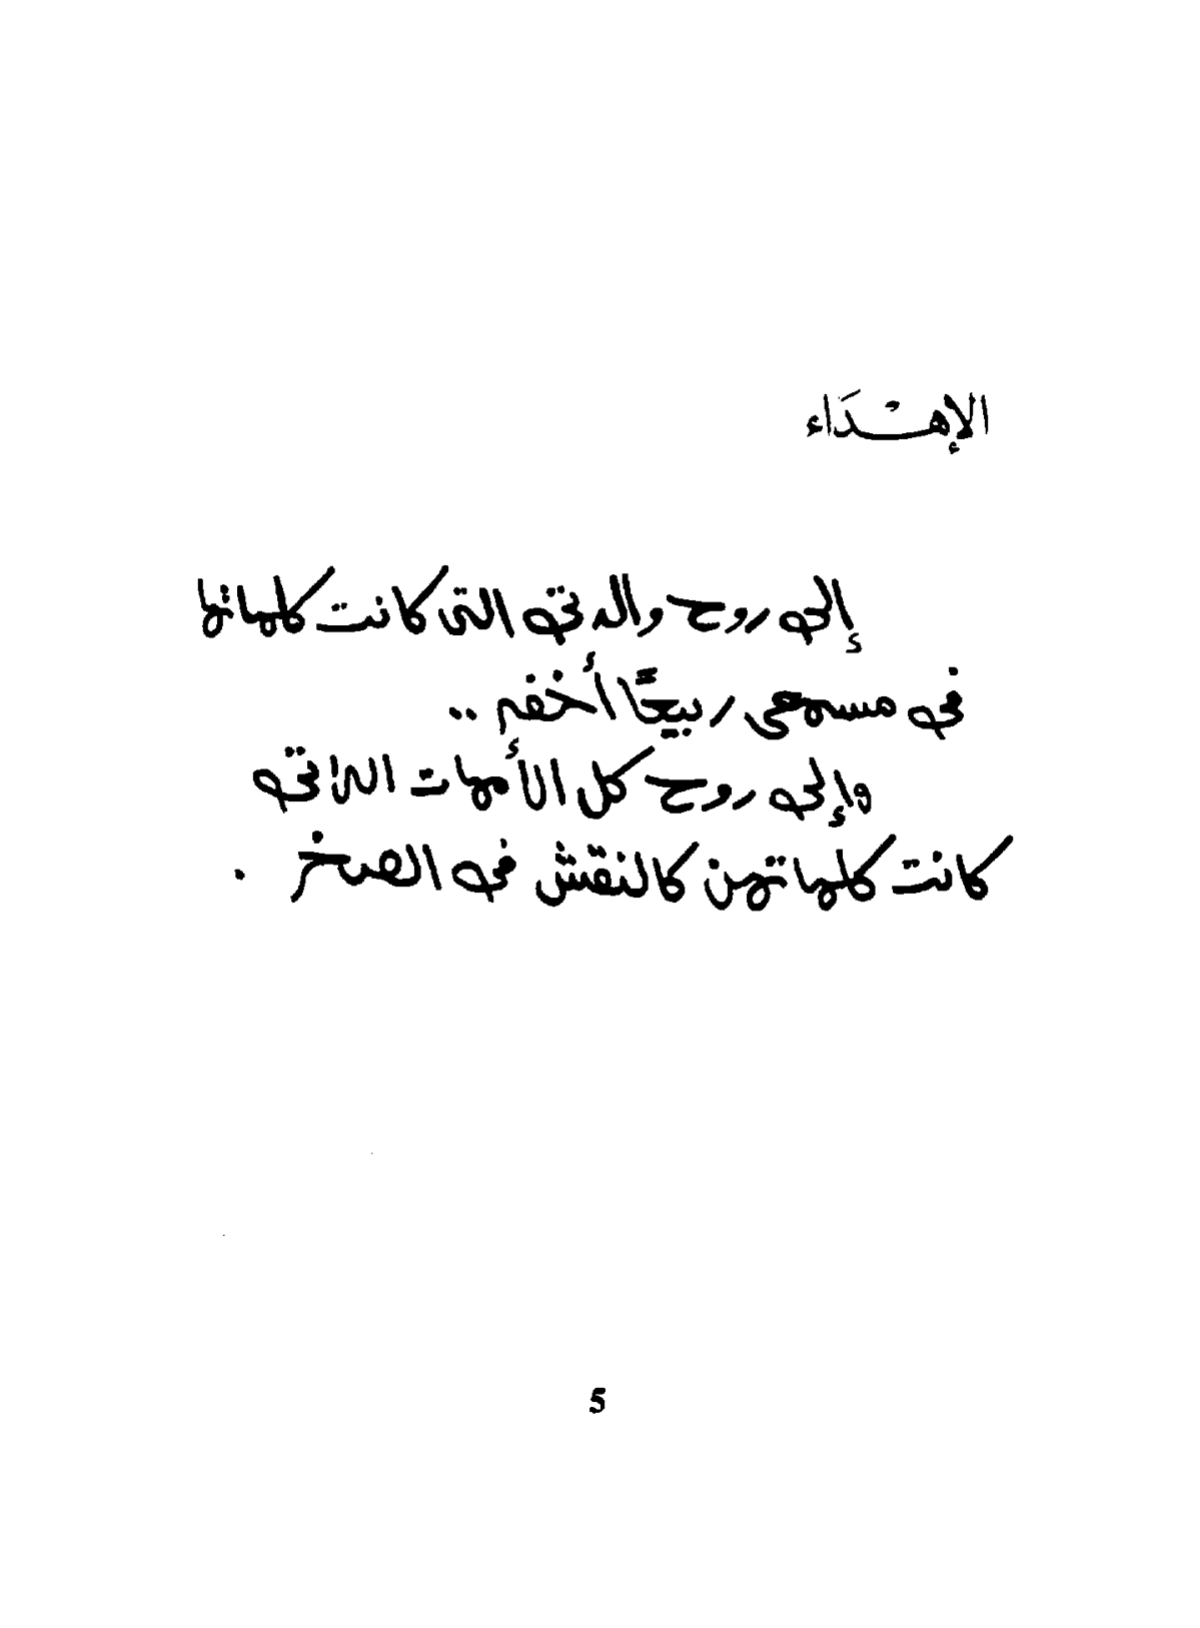 الإهْـدَاء
إلى روح والدتي التى كانت كلماتها
في مسمعى ربيعًا أخضر ..
وإلى روح كل الأمهات اللاتي
كانت كلماتهن كالنقش في الصخر .
5